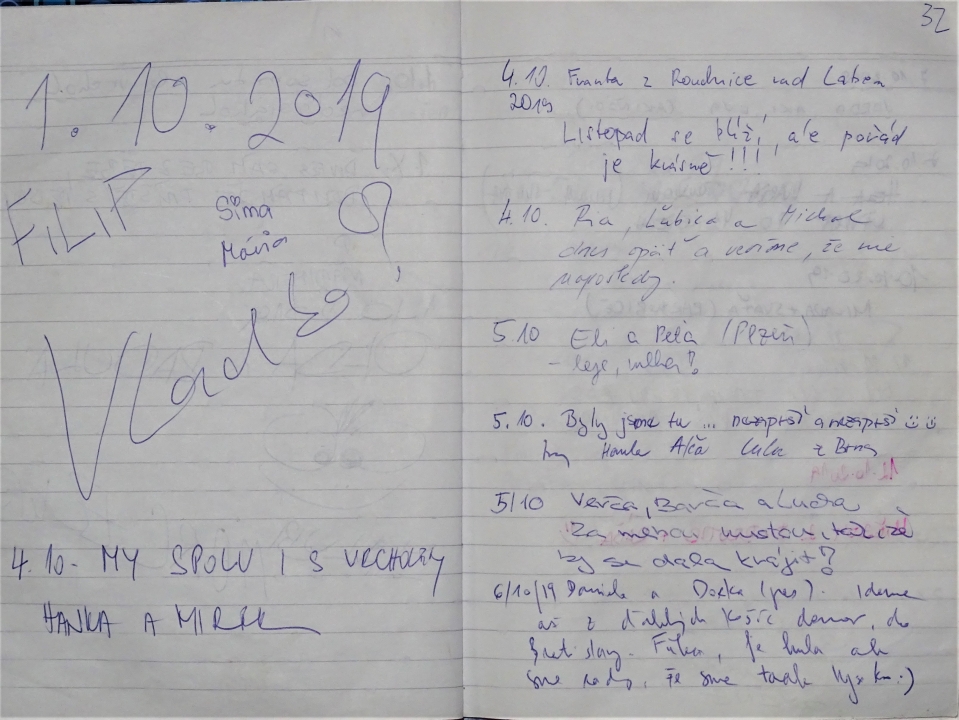 1. 10. 2019
FILIP
Sima
Mária
Vlado!
4.10. MY SPOLU I S VRCHOLKY
HANKA A MIREK
32
4.10. Franta z Roudnice nad Labem
2019
Listopad se blíží, ale pořád
je krásně!!!
4.10. Ria, Ľubica a Michal
dnes opäť a veríme, že nie
naposledy.
5.10 Eli a Peťa (Plzeň)
- leje, mlha!
5.10. Byly jsme tu ... nezaprší a nezaprší
my Hanka Alča z Brna
5/10 Verča, Barča a Lucka
Za mlhou hustou, tak že
by se dala krájit?
6/10/19 Daniela a Dorka (pes). Ideme
až z ďalekých Košíc domov, do
Bratislavy. Fúka, je hmla ale
sme rady, že sme takto :)